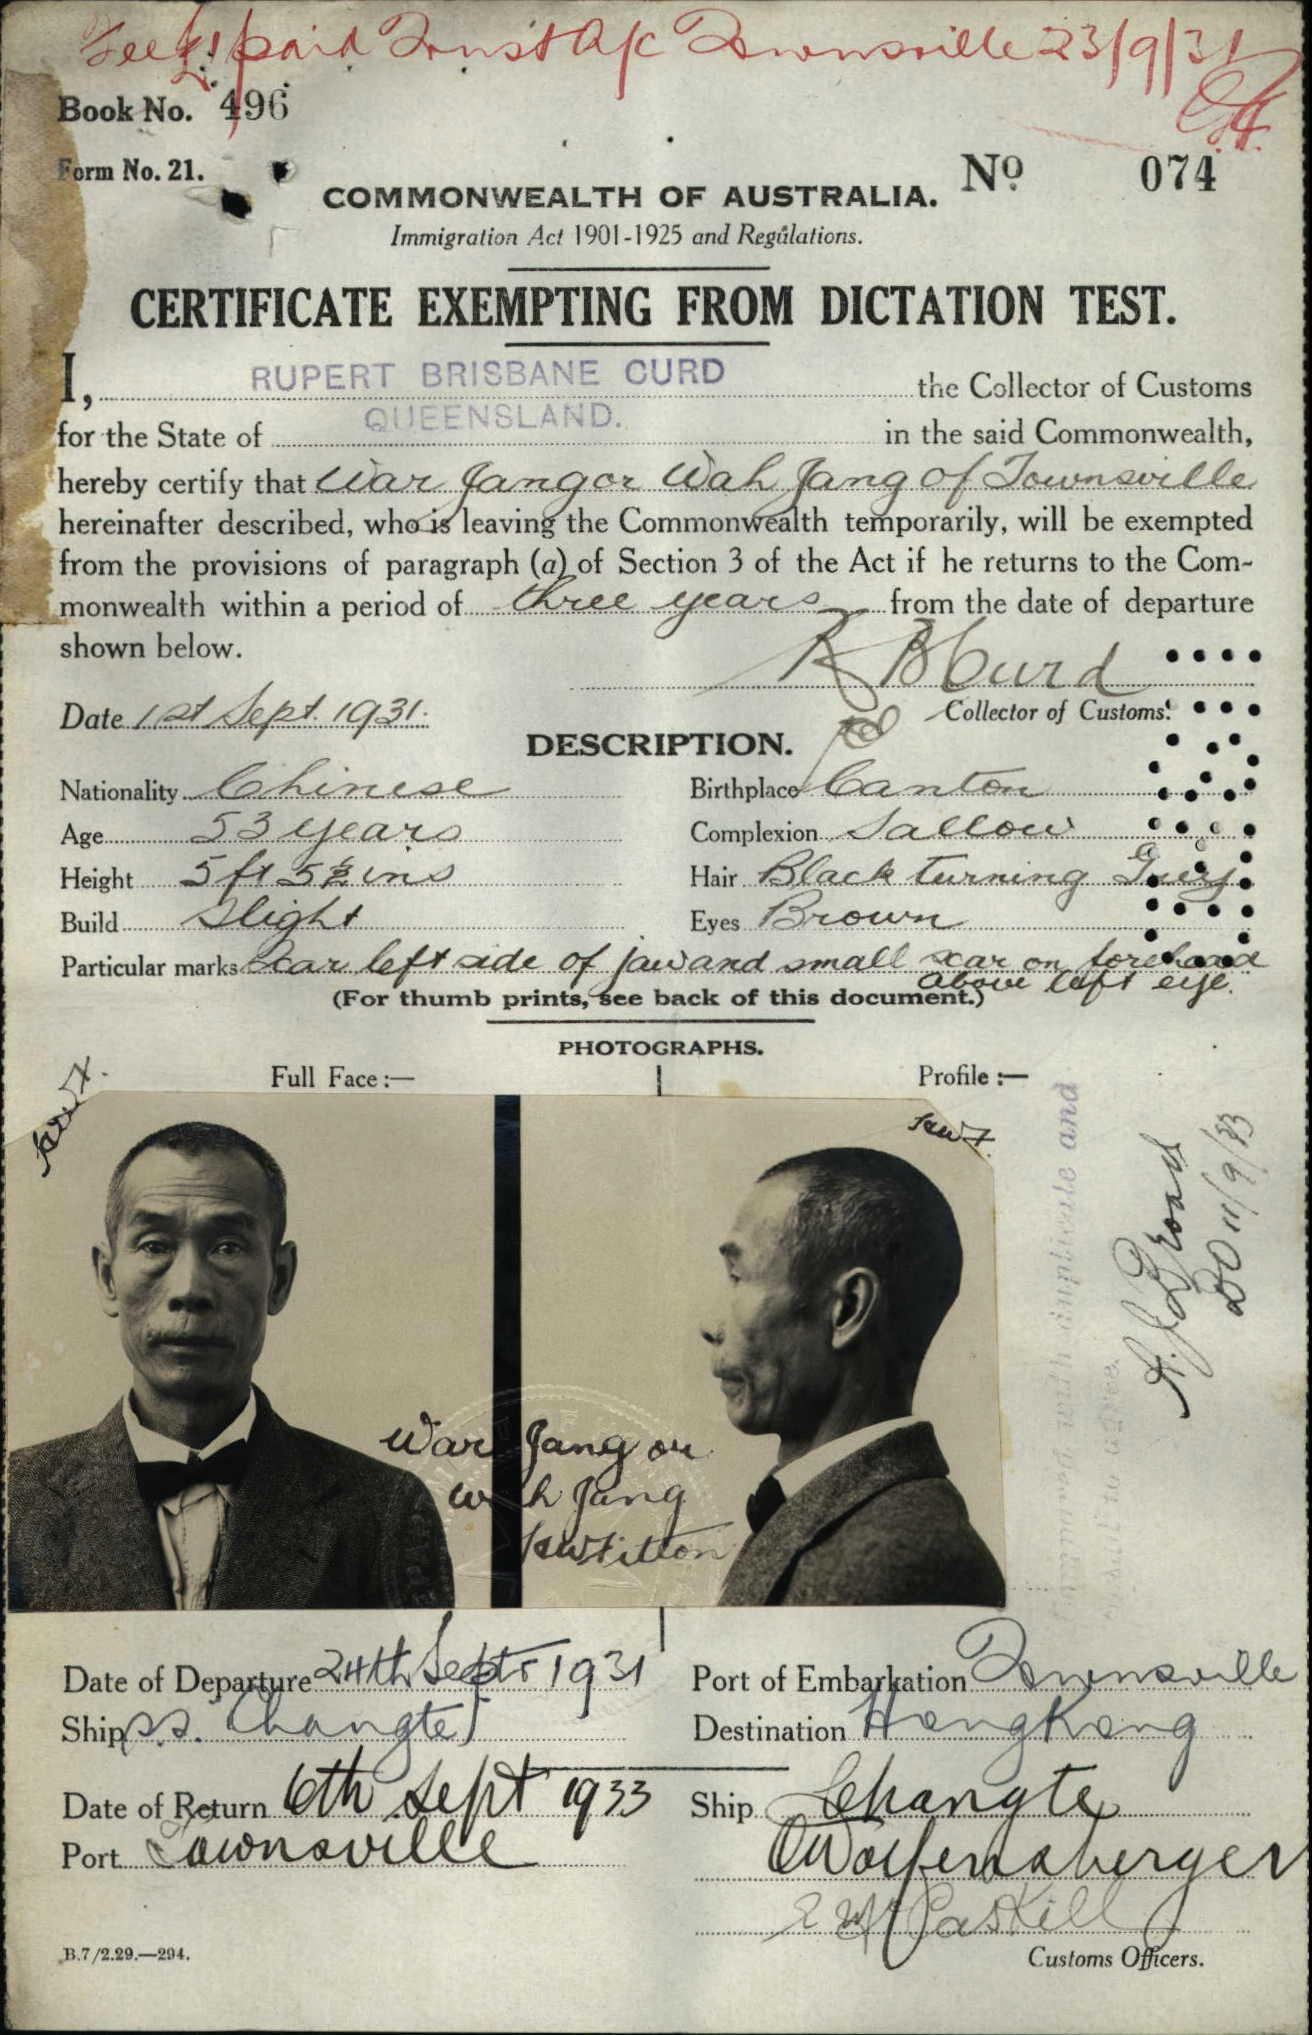 Fee £1 paid Trust A/c Townsville 23/9/31
Book No. 496
Form No. 21.
No. 074
COMMONWEALTH OF AUSTRALIA.
Immigration Act 1901-1925 and Regulations.
CERTIFICATE EXEMPTING FROM DICTATION TEST.
I, RUPERT BRISBANE CURD the Collector of Customs
for the State of QUEENSLAND. in the said Commonwealth,
hereby certify that War Jang or Wah Jang of Townsville
hereinafter described, who is leaving the Commonwealth temporarily, will be exempted
from the provisions of paragraph (a) of Section 3 of the Act if he returns to the Com-
monwealth within a period of three years from the date of departure
shown below.
R B Curd
Date 1st Sept. 1931. Collector of Customs.
DESCRIPTION.
Nationality Chinese Birthplace Canton
Age 53 years Complexion Sallow
Height 5 ft 5½ ins Hair Black turning Grey
Build Slight Eyes Brown
Particular marks Scar left side of jaw and small scar on forehead
above left eye.
(For thumb prints, see back of this document.)
PHOTOGRAPHS.
Full Face :— Profile :—
War Jang or
Wah Jang
11/9/33
duplicate and
Date of Departure 24th Sept 1931 Port of Embarkation Townsville
Ship s.s. Changte Destination HongKong
Date of Return 6th Sept 1933 Ship Changte
Port Townsville
Customs Officers.
B.7/2.29.—294.